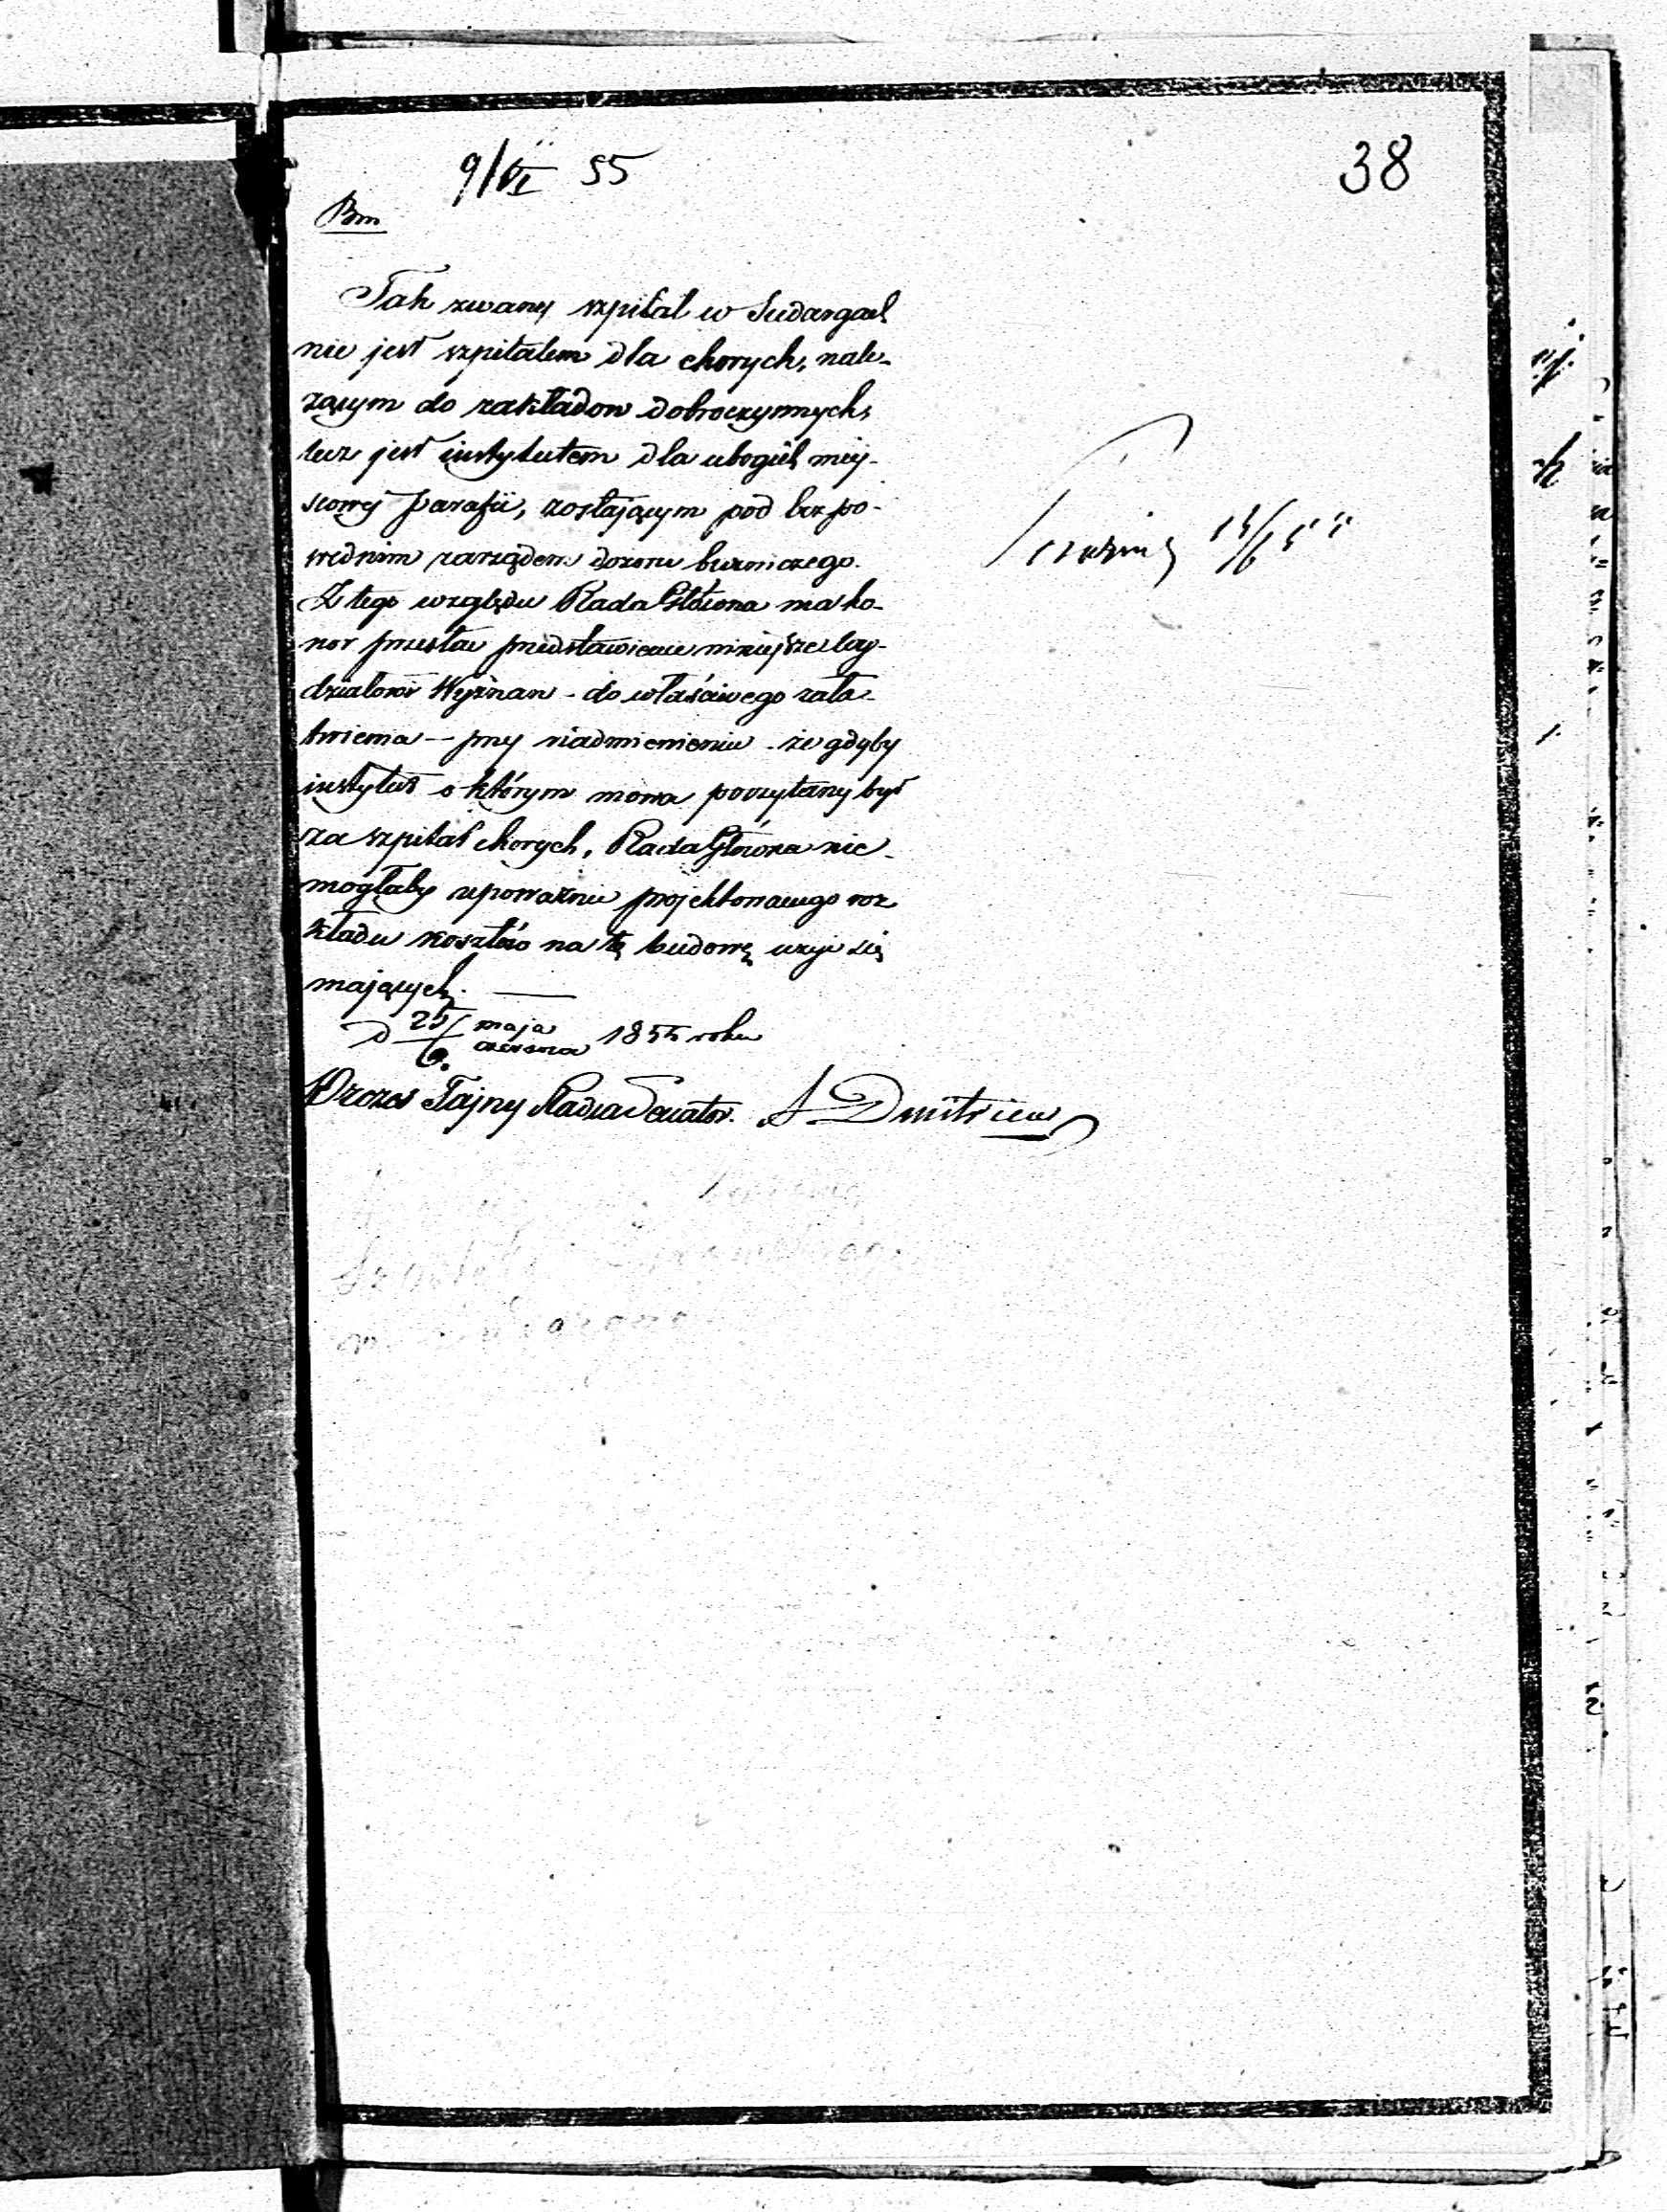 9/VI 55
38
Bm
Tak zwany szpital w Sudargach
nie jest szpitalem dla chorych, nale-
żącym do zakładow dobroczynnych,
lecz jest instytutem dla ubogich miej-
scowej parafii, zostającym pod bezpo-
srednim zarządem dozoru bożniczego.
Z tego względu Rada Główna ma ho-
nor przesłać przedstawienie niniejsze Wy-
działowi Wyznan - do właściwego zała-
twienia - przy nadmienieniu - że gdyby
instytut o którym mowa poczytany był
za szpital chorych, Rada Główna nie
mogłaby upoważnić projektowanego roz
kładu kosztów na tę budowę użyć się
mających. —
d 25/6. maja czerwca 1855 roku
Prezes Tajny Radca Senator. S Dmitriew